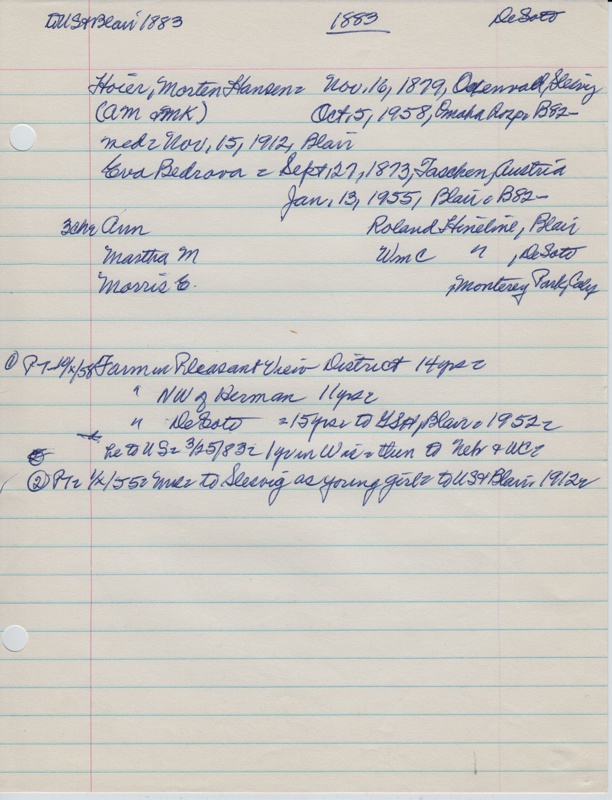 to US & Blair 1883 1883 DeSoto
Hoier, Morten Hansen = Nov. 16, 1879,
(AM & MK) Oct. 5, 1958, Omaha B82-
wed = Nov. 15, 1912, Blair
Eva Bedrova = Sept. 27, 1873, Taschen, Austria
Jan. 13, 1955, Blair B82-
3ch= Ann Roland Hineline, Blair
Martha M Wm C " , DeSoto
Morris E. , Monterey Park, Calif
① PT- /58 Farm in Pleasant View District 14yrs=
" NW of Herman 11yrs=
" DeSoto =15yrs= to Blair= 1952=
he to US= 3/25/83= 1yr in Wis= then to Nebr & WC=
② PT= /55= to Slesvig as young girl= to US & Blair= 1912=